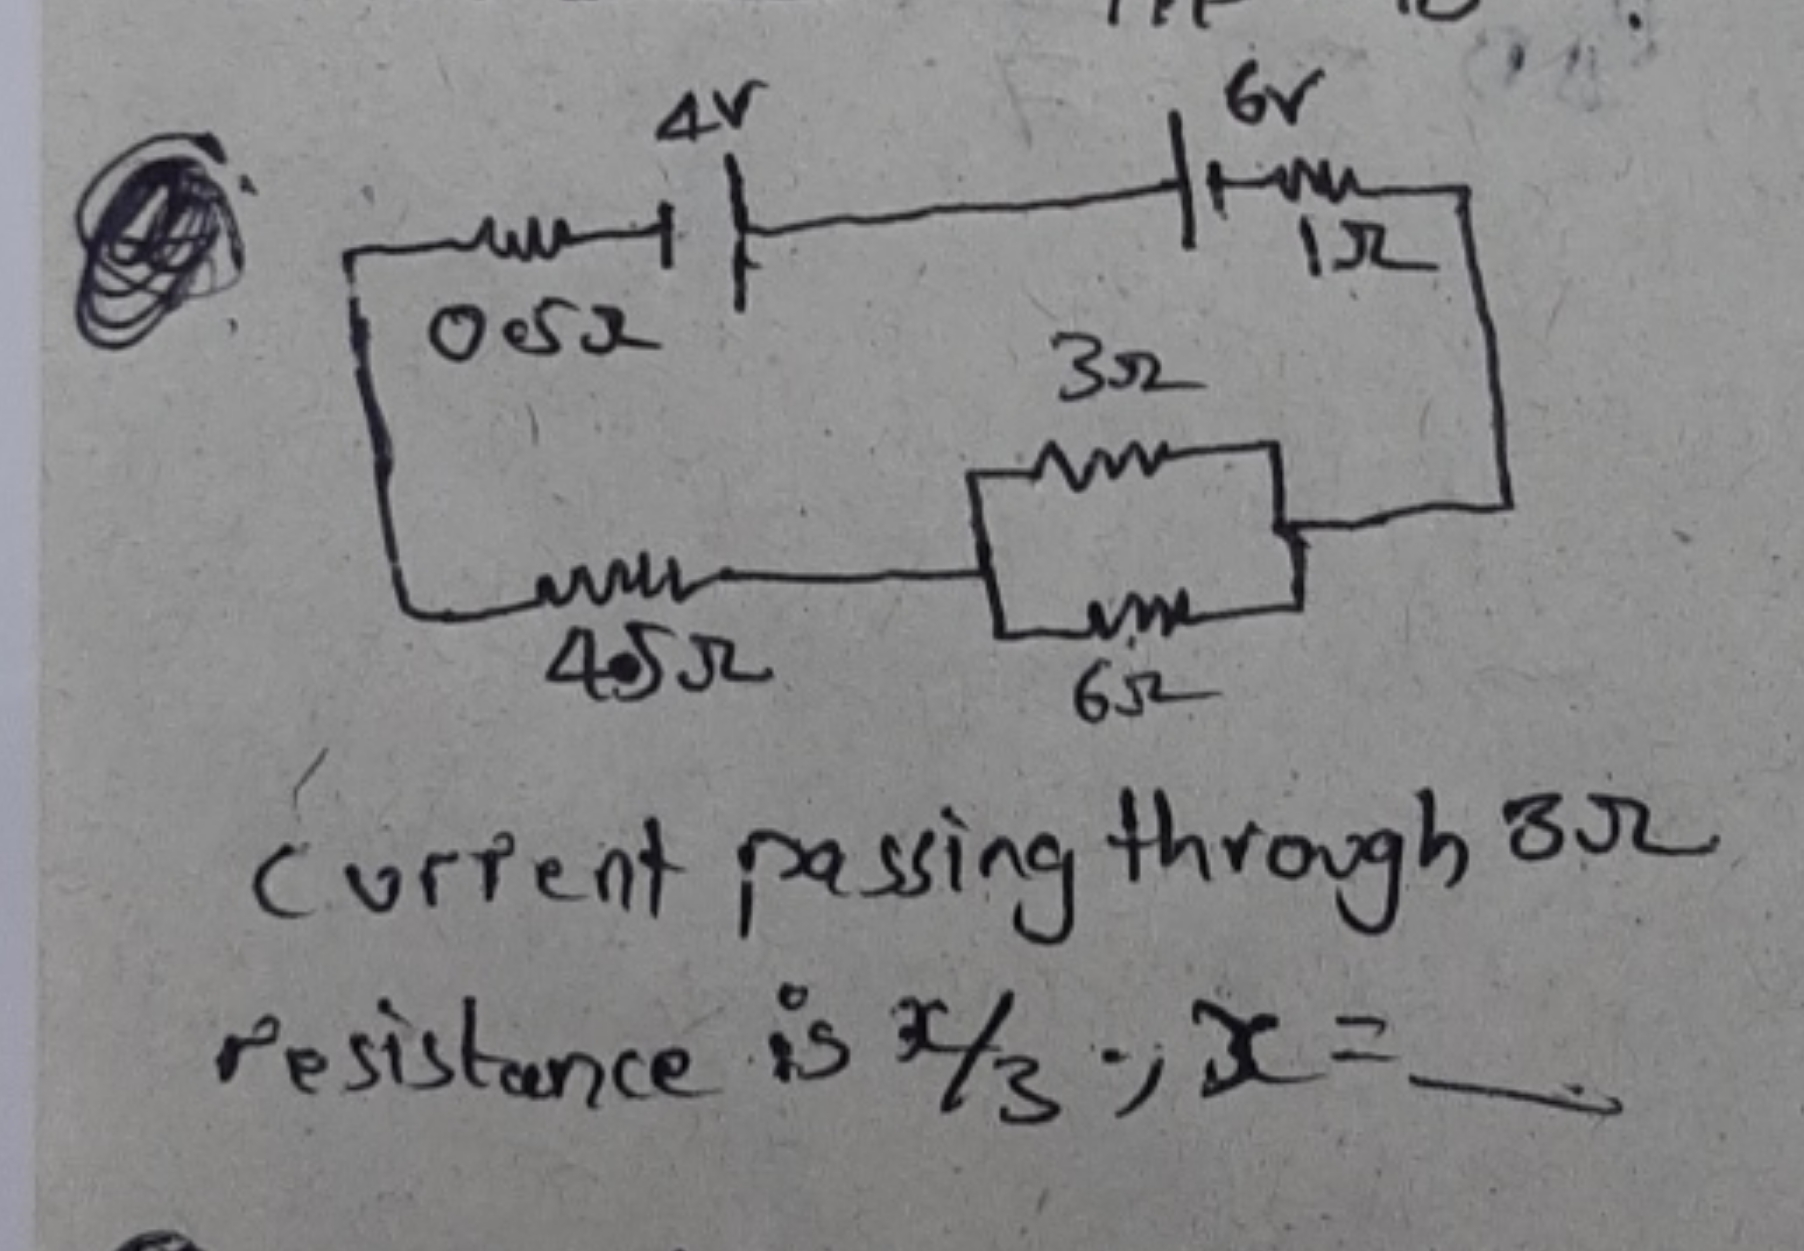 4V 6V
0.5Ω 1Ω
3Ω
4.5Ω 6Ω
Current passing through 3Ω
resistance is x/3 ; x = __